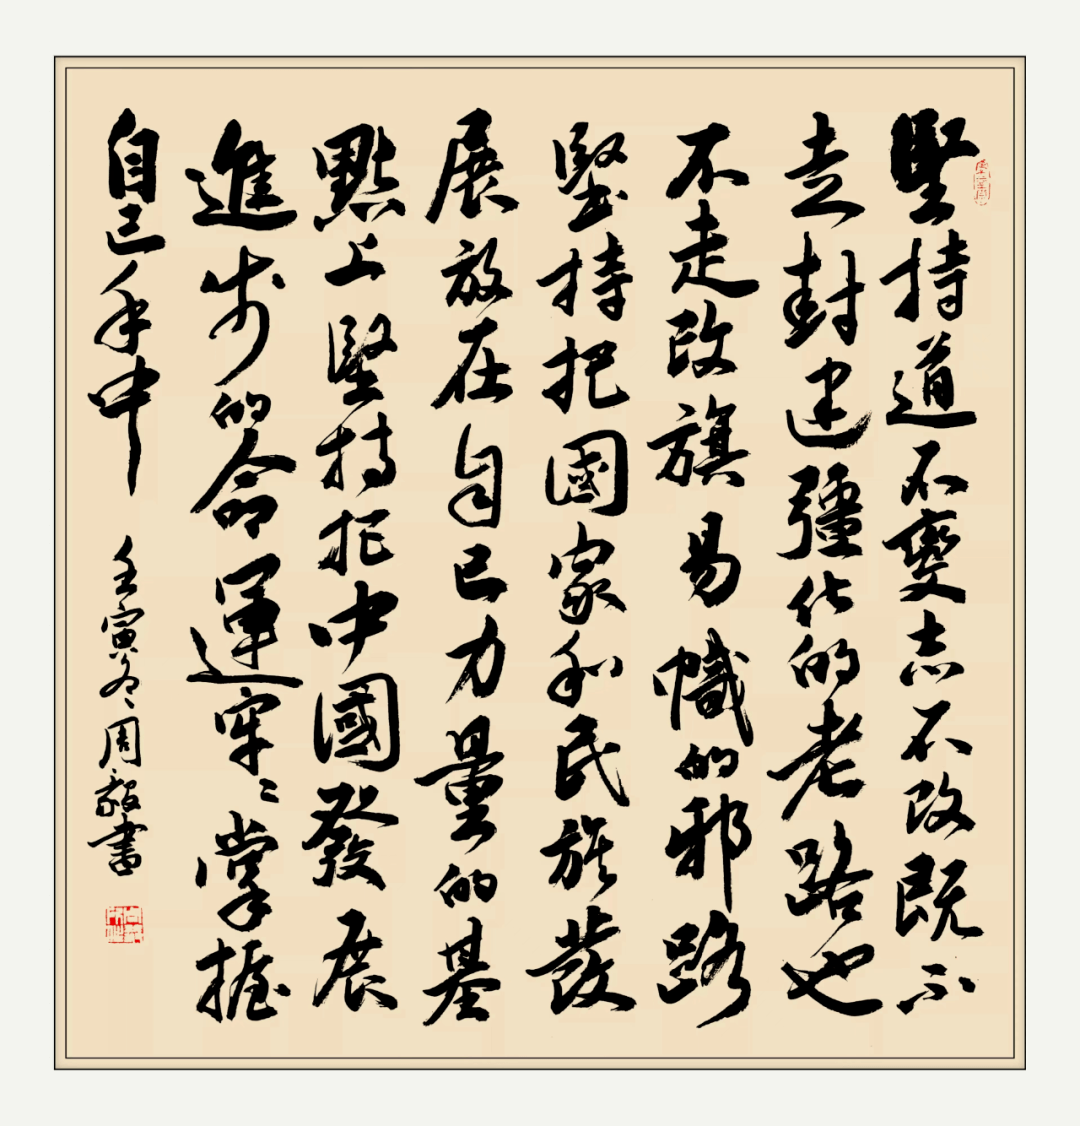 堅持道不變志不改既不
走封建彊化的老路也
不走改旗易幟的邪路
堅持把國家和民族發
展放在自己力量的基
點上堅持把中國發展
進步的命運牢〻掌握
自己手中
壬寅冬周毅書